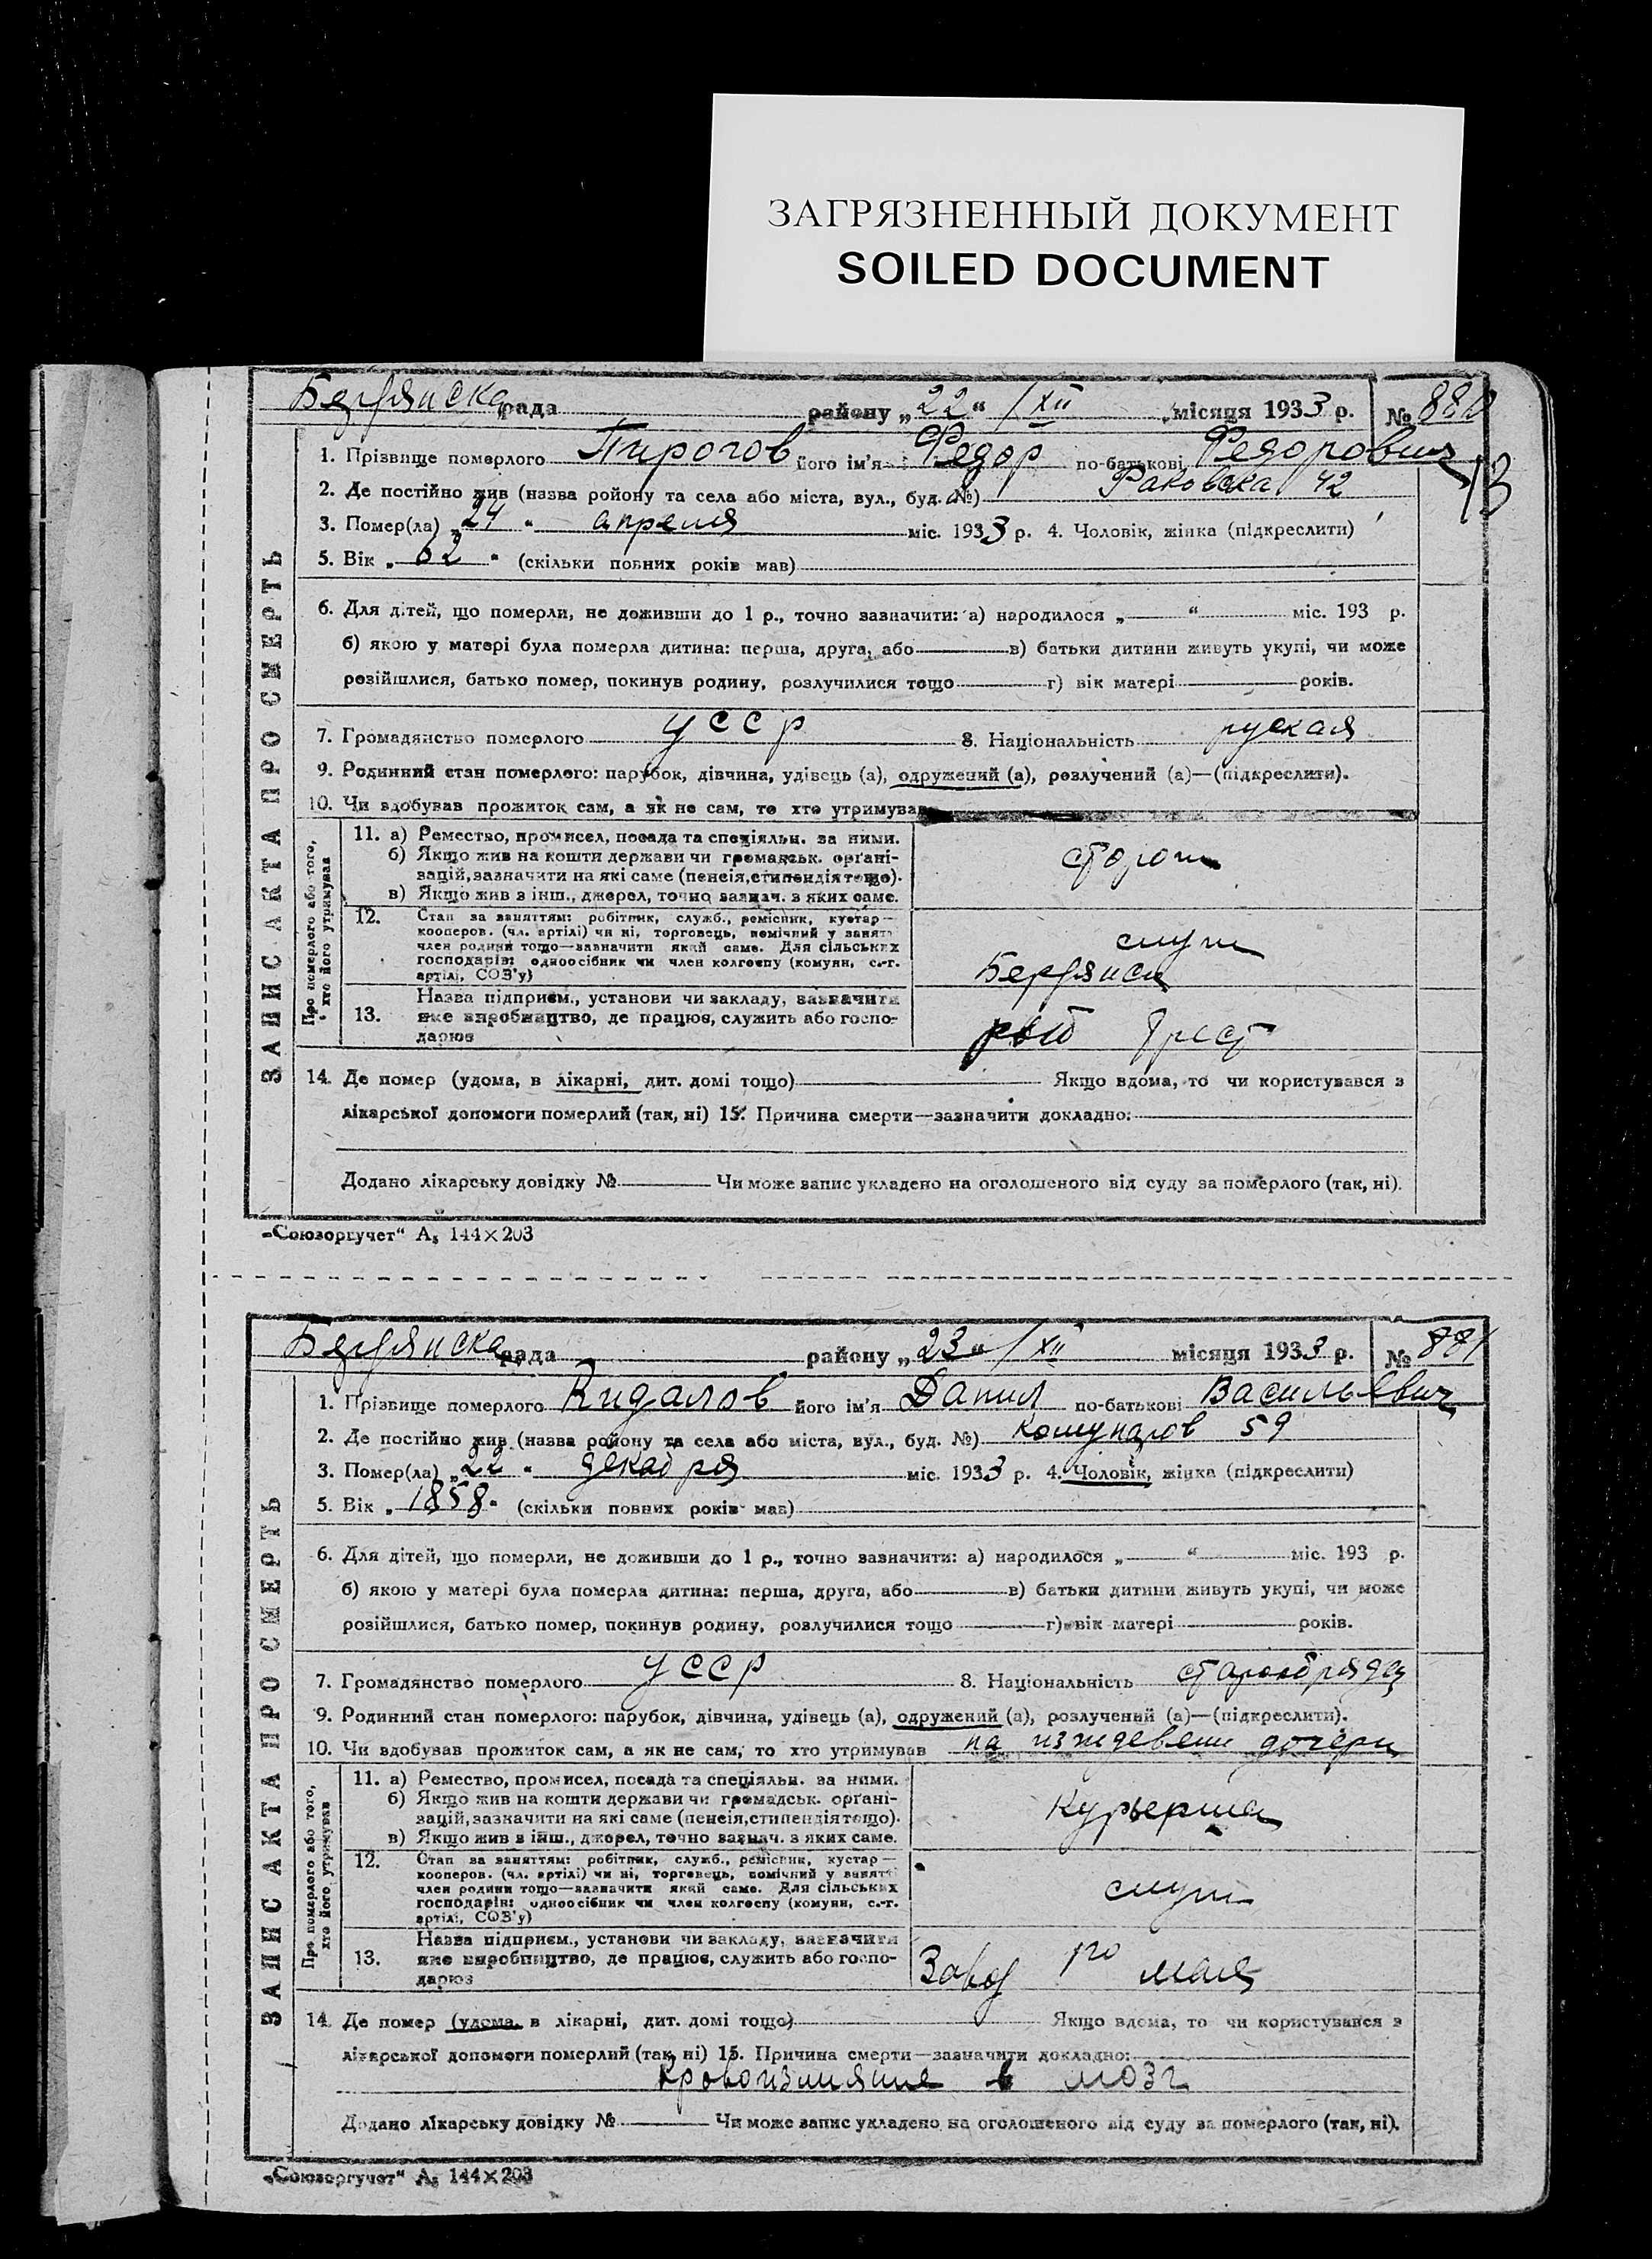 ЗАГРЯЗНЕННЫЙ ДОКУМЕНТ
SOILED DOCUMENT
Бердянска рада району „22“ /XII місяця 1933 р. № 880
1. Прізвище померлого Пирогов його ім'я Федор по-батькові Федорович
13
2. Де постійно жив (назва ройону та села або міста, вул., буд. №) Раковска 42
3. Помер(ла) „24“ апреля міс. 1933 р. 4. Чоловік, жінка (підкреслити)
5. Вік „62“ (скільки повних років мав)
6. Для дітей, що померли, не доживши до 1 р., точно зазначити: а) народилося „ “ міс. 193 р.
б) якою у матері була померла дитина: перша, друга, або в) батьки дитини живуть укупі, чи може
розійшлися, батько помер, покинув родину, розлучилися тощо г) вік матері років.
7. Громадянство померлого УССР 8. Національність руская
9. Родинний стан померлого: парубок, дівчина, удівець (а), одружений (а), розлучений (а)—(підкреслити).
10. Чи здобував прожиток сам, а як не сам, то хто утримував
ЗАПИС АКТА ПРО СМЕРТЬ
Про померлого або того,
хто його утримував
11. а) Ремество, промисел, посада та спеціяльн. за ними.
б) Якщо жив на кошти держави чи громадськ. орґані-
зацій, зазначити на які саме (пенсія, стипендія тощо).
в) Якщо жив з інш., джерел, точно зазнач. з яких саме.
сторож
12. Стан за заняттям: робітник, служб., ремісник, кустар—
кооперов. (чл. артілі) чи ні, торговець, помічний у занятт
член родини тощо—зазначити який саме. Для сільських
господарів: одноосібник чи член колгоспу (комуни, с.-г.
артілі, СОЗ'у)
служ
Бердянск
13. Назва підприєм., установи чи закладу, зазначити
яке виробництво, де працює, служить або госпо-
дарює
рыб Трест
14. Де помер (удома, в лікарні, дит. домі тощо) Якщо вдома, то чи користувався з
лікарської допомоги померлий (так, ні) 15. Причина смерти—зазначити докладно:
Додано лікарську довідку № Чи може запис укладено на оголошеного від суду за померлого (так, ні).
„Союзоргучет“ А₅ 144×203
Бердянска рада району „23“ /XII місяця 1933 р. № 881
1. Прізвище померлого Кидалов його ім'я Данил по-батькові Васильевич
2. Де постійно жив (назва ройону та села або міста, вул., буд. №) Комунаров 59
3. Помер(ла) „22“ декабря міс. 1933 р. 4. Чоловік, жінка (підкреслити)
5. Вік „1858“ (скільки повних років мав)
6. Для дітей, що померли, не доживши до 1 р., точно зазначити: а) народилося „ “ міс. 193 р.
б) якою у матері була померла дитина: перша, друга, або в) батьки дитини живуть укупі, чи може
розійшлися, батько помер, покинув родину, розлучилися тощо г) вік матері років.
7. Громадянство померлого УССР 8. Національність старообрядец
9. Родинний стан померлого: парубок, дівчина, удівець (а), одружений (а), розлучений (а)—(підкреслити).
10. Чи здобував прожиток сам, а як не сам, то хто утримував на изждевени дочери
ЗАПИС АКТА ПРО СМЕРТЬ
Про померлого або того,
хто його утримував
11. а) Ремество, промисел, посада та спеціяльн. за ними.
б) Якщо жив на кошти держави чи громадськ. орґані-
зацій, зазначити на які саме (пенсія, стипендія тощо).
в) Якщо жив з інш., джерел, точно зазнач. з яких саме.
Курьерша
12. Стан за заняттям: робітник, служб., ремісник, кустар—
кооперов. (чл. артілі) чи ні, торговець, помічний у занятт
член родини тощо—зазначити який саме. Для сільських
господарів: одноосібник чи член колгоспу (комуни, с.-г.
артілі, СОЗ'у)
служ
13. Назва підприєм., установи чи закладу, зазначити
яке виробництво, де працює, служить або госпо-
дарює
Завод 1го мая
14. Де помер (удома, в лікарні, дит. домі тощо) Якщо вдома, то чи користувався з
лікарської допомоги померлий (так, ні) 15. Причина смерти—зазначити докладно:
кровоизлияние в мозг
Додано лікарську довідку № Чи може запис укладено на оголошеного від суду за померлого (так, ні).
„Союзоргучет“ А₅ 144×203